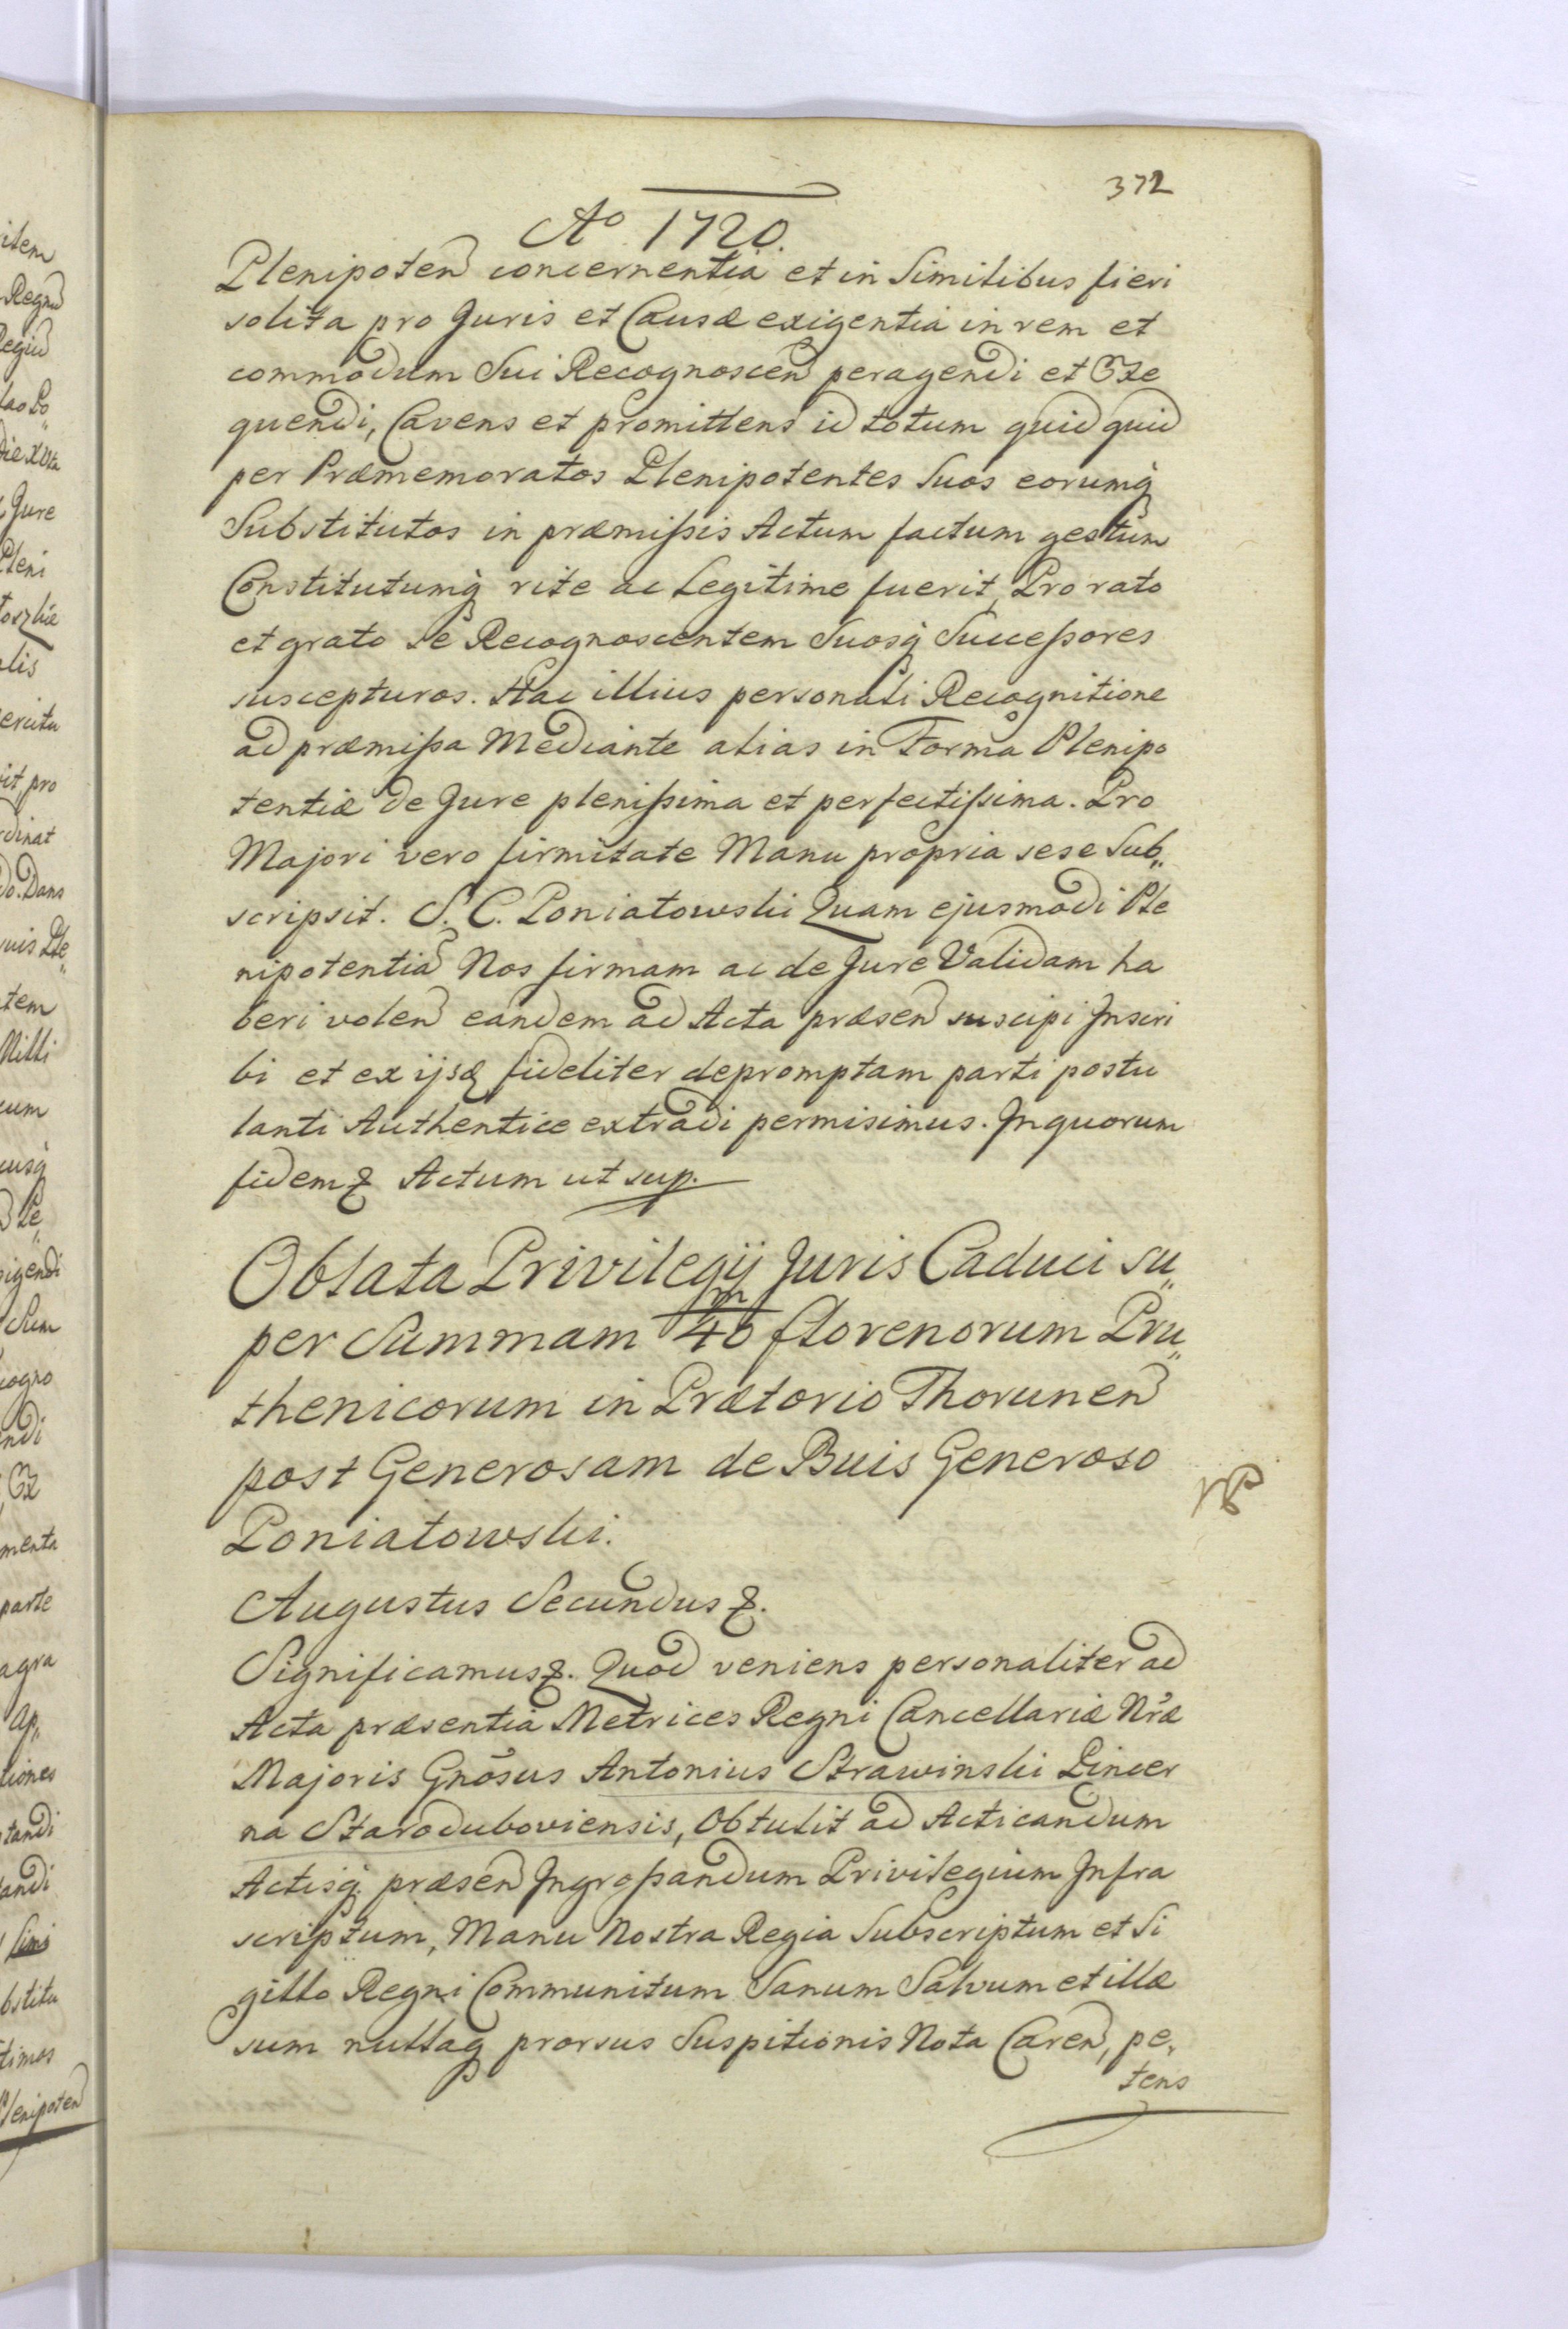 372
Aº 1720.
Plenipoten concernentia et in Similibus fieri
solita pro Juris et Causæ exigentia in rem et
commodum Sui Recognoscen peragendi et Exe
quendi, Cavens et promittens id totum quid quid
per Præmemoratos Plenipotentes Suos eorumq
Substitutos in præmißis Actum factum gestum
Constitutumq rite ac Legitime fuerit, Pro rato
et grato se Recognoscentem Suosq Succeßores
suscepturos. Hac illius personali Recognitione
ad præmißa Mediante alias in Forma Plenipo
tentiæ de Jure plenißima et perfectißima. Pro
Majori vero firmitate Manu propria sese Sub„
scripsit. S. C. Poniatowski Quam ejusmodi Ple
nipotentia Nos firmam ac de Jure Validam ha
beri volen eandem ad Acta præsen suscipi Inscri
bi et ex ijsq fideliter depromptam parti postu
lanti Authentice extradi permisimus. In quorum
fidem & Actum ut sup.
Oblata Privilegij Juris Caduci su„
per Summam 40 m florenorum Pru„
thenicorum in Prætorio Thorunen
post Generosam de Buis Generoso
Poniatowski.
Augustus Secundus &.
Significamus &. Quod veniens personaliter ad
Acta præsentia Metrices Regni Cancellariæ Nræ
Majoris Gnosus Antonius Strawinski Pincer
na Staroduboviensis, Obtulit ad Acticandum
Actisq præsen Ingroßandum Privilegium Infra
scriptum, Manu Nostra Regia Subscriptum et Si
gillo Regni Communitum Sanum Salvum et illæ
sum nullaq prorsus Suspitionis Nota Caren, pe„
tens